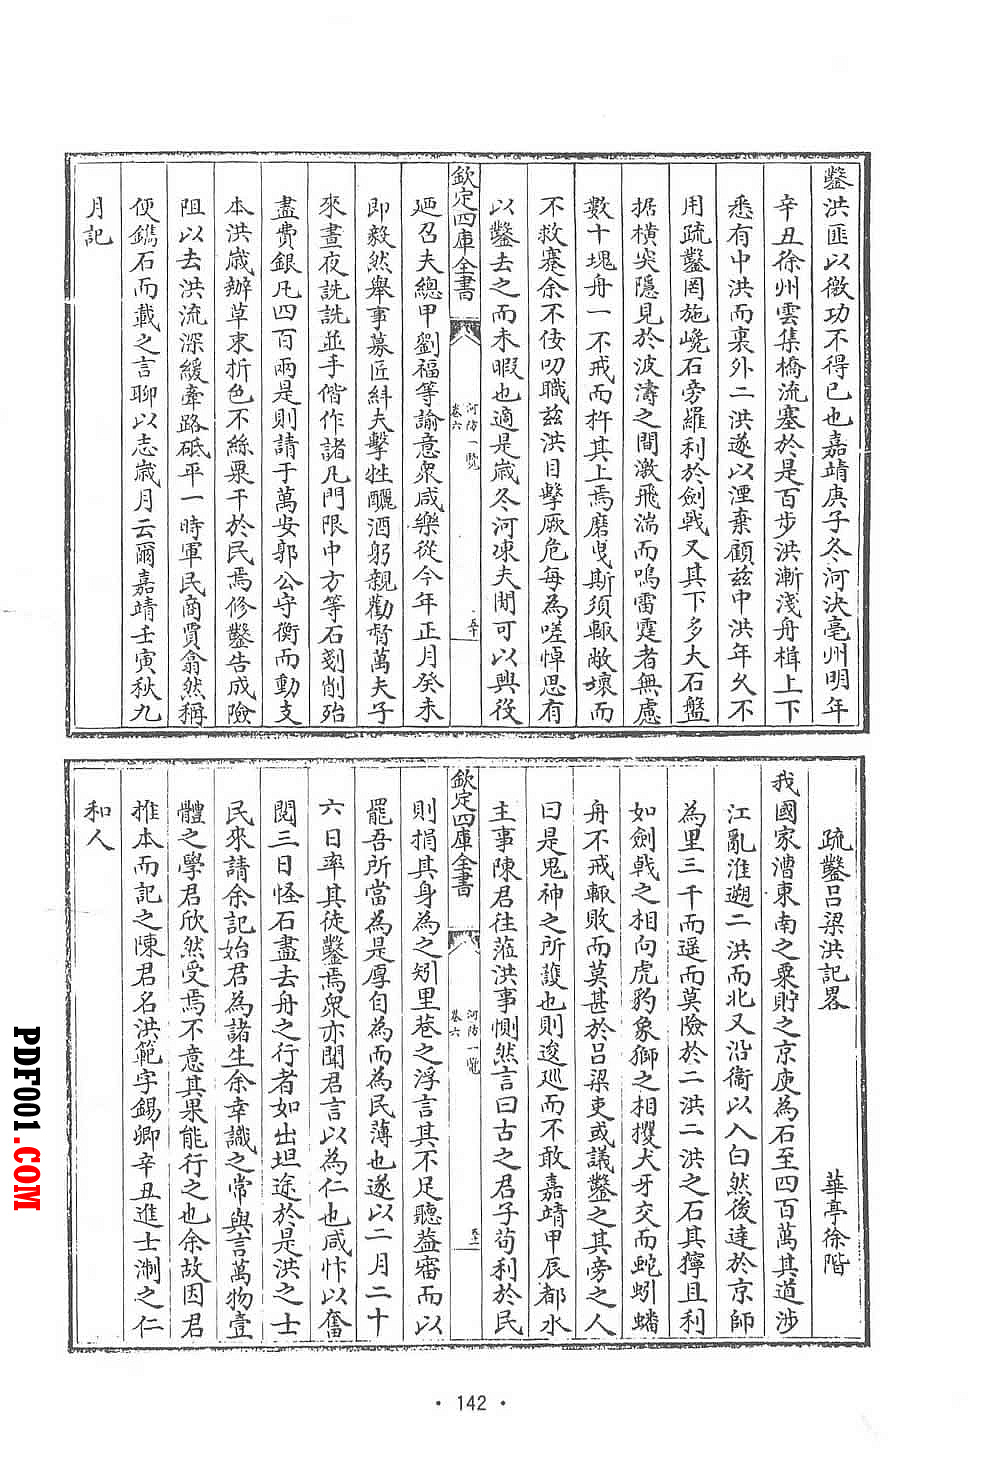 鑿洪匪以徼功不得已也嘉靖庚子冬河決亳州明年
辛丑徐州雲集橋流塞於是百步洪漸淺舟楫上下
悉有中洪而裏外二洪遂以湮棄顧茲中洪年久不
用疏鑿罔施巉石旁羅利於劍戟又其下多大石盤
据橫突隱見於波濤之間激飛湍而鳴雷霆者無慮
數十塊舟一不戒而杵其上焉磨曳斯須輒敝壞而
不救蹇余不佞叨職茲洪目擊厥危每為嗟悼思有
以鑿去之而未暇也適是歲冬河凍夫閒可以興役
欽定四庫全書
河防一覽
卷六
五十
廼召夫總甲劉福等諭意衆咸樂從今年正月癸未
即毅然舉事募匠斜夫擊牲釃酒躬親勸督萬夫子
來晝夜詵詵並手偕作諸凡門限中方等石剗削殆
盡費銀凡四百兩是則請于萬安郭公守衡而動支
本洪歲辦草束折色不絲粟干於民焉修鑿告成險
阻以去洪流深緩牽路砥平一時軍民商賈翕然稱
便鐫石而載之言聊以志歲月云爾嘉靖壬寅秋九
月記
疏鑿呂梁洪記畧
華亭徐階
我國家漕東南之粟貯之京庾為石至四百萬其道涉
江亂淮遡二洪而北又沿衞以入白然後達於京師
為里三千而遥而莫險於二洪二洪之石其獰且利
如劍戟之相向虎豹象獅之相攫犬牙交而蛇蚓蟠
舟不戒輒敗而莫甚於呂梁吏或議鑿之其旁之人
曰是鬼神之所護也則逡廵而不敢嘉靖甲辰都水
主事陳君往蒞洪事惻然言曰古之君子苟利於民
欽定四庫全書
河防一覽
卷六
五十一
則捐其身為之矧里巷之浮言其不足聽葢審而以
罷吾所當為是厚自為而為民薄也遂以二月二十
六日率其徒鑿焉衆亦聞君言以為仁也咸忭以奮
閱三日怪石盡去舟之行者如出坦途於是洪之士
民來請余記始君為諸生余幸識之常與言萬物壹
體之學君欣然受焉不意其果能行之也余故因君
推本而記之陳君名洪範字錫卿辛丑進士淛之仁
和人
· 142 ·
PDF001.COM